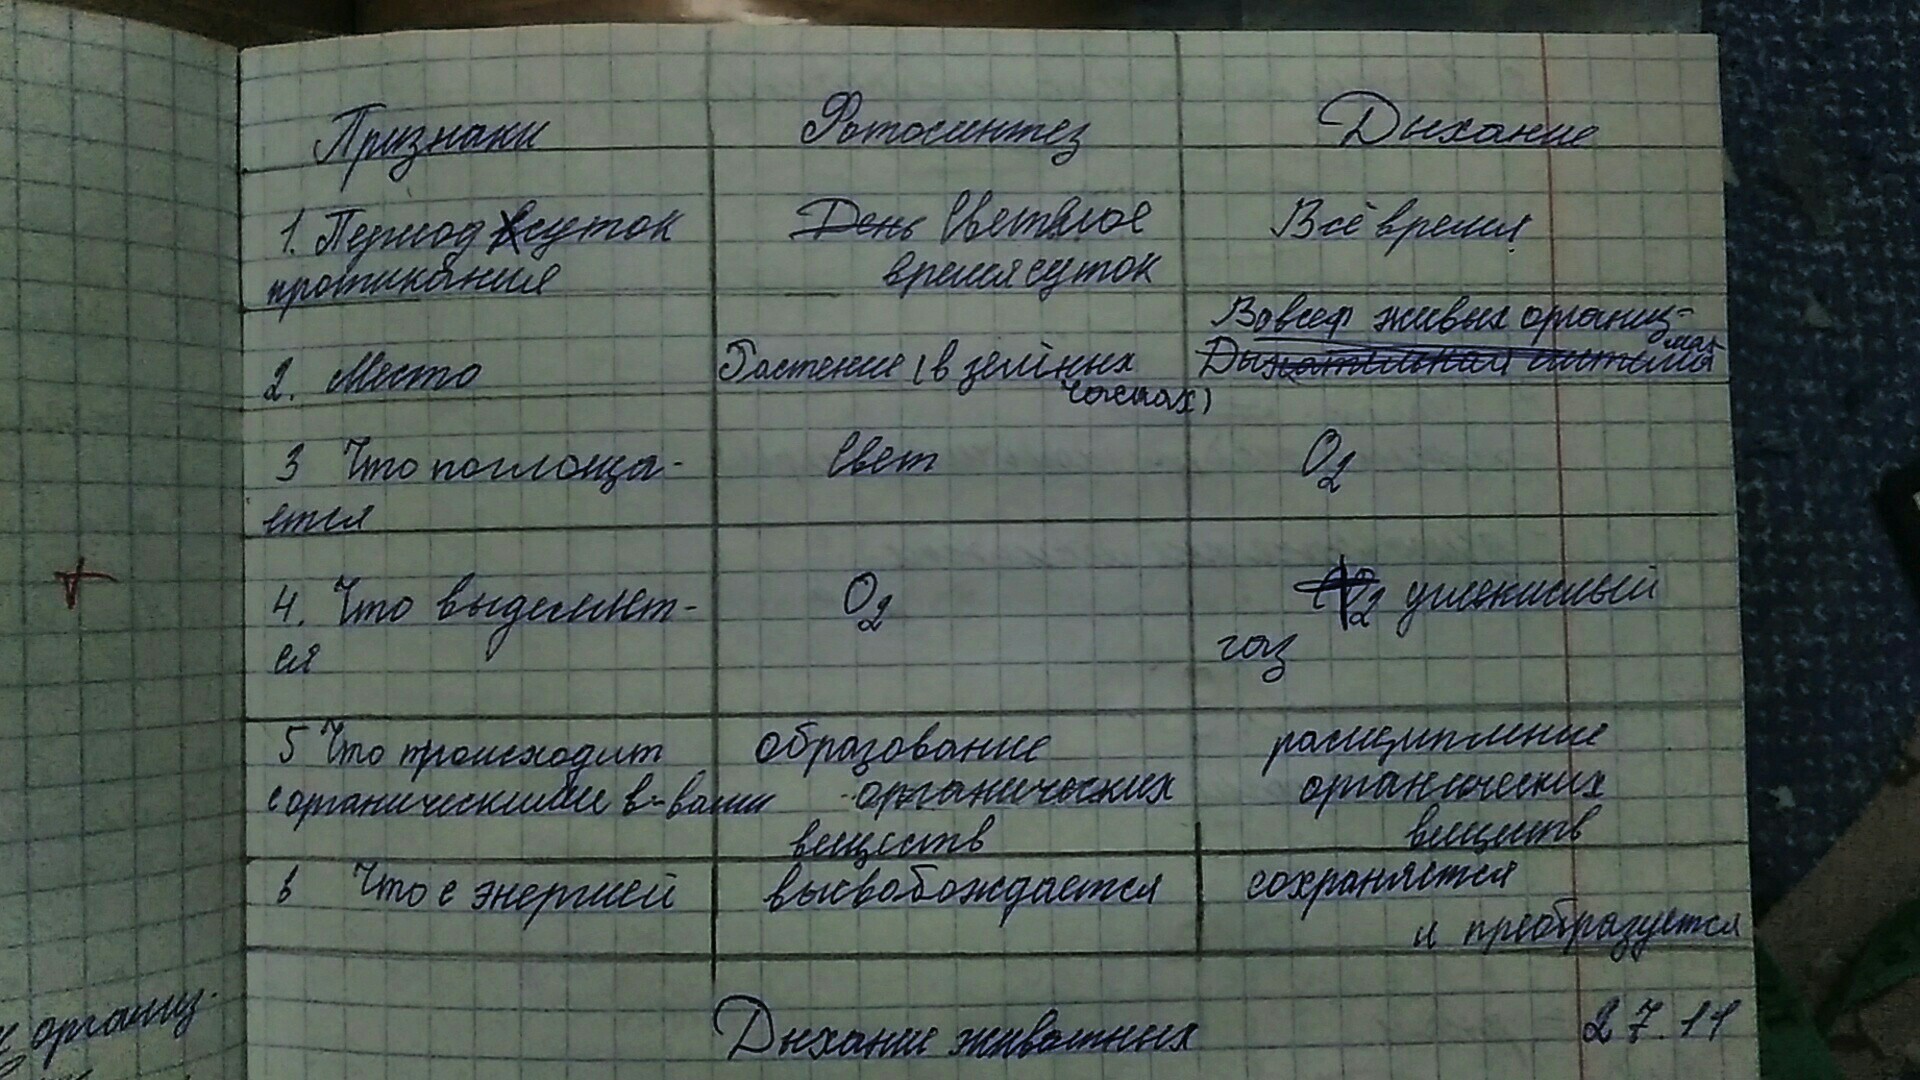 Признаки Фотосинтез Дыхание
1. Период суток День Светлое Всё время
протикания время суток
Во всех живых организ-
мах
2. Место Растение (в зелёных Дыхательная система
частях)
3 Что поглоща- Свет O2
ется
4. Что выделяет- O2 углекислый
ся газ
5 Что происходит образование расщипление
с органическими в-вами органических органических
веществ веществ
6 Что с энергией высвобождается сохраняется
и преобразуется
Дыхание животных 27.11
организ-